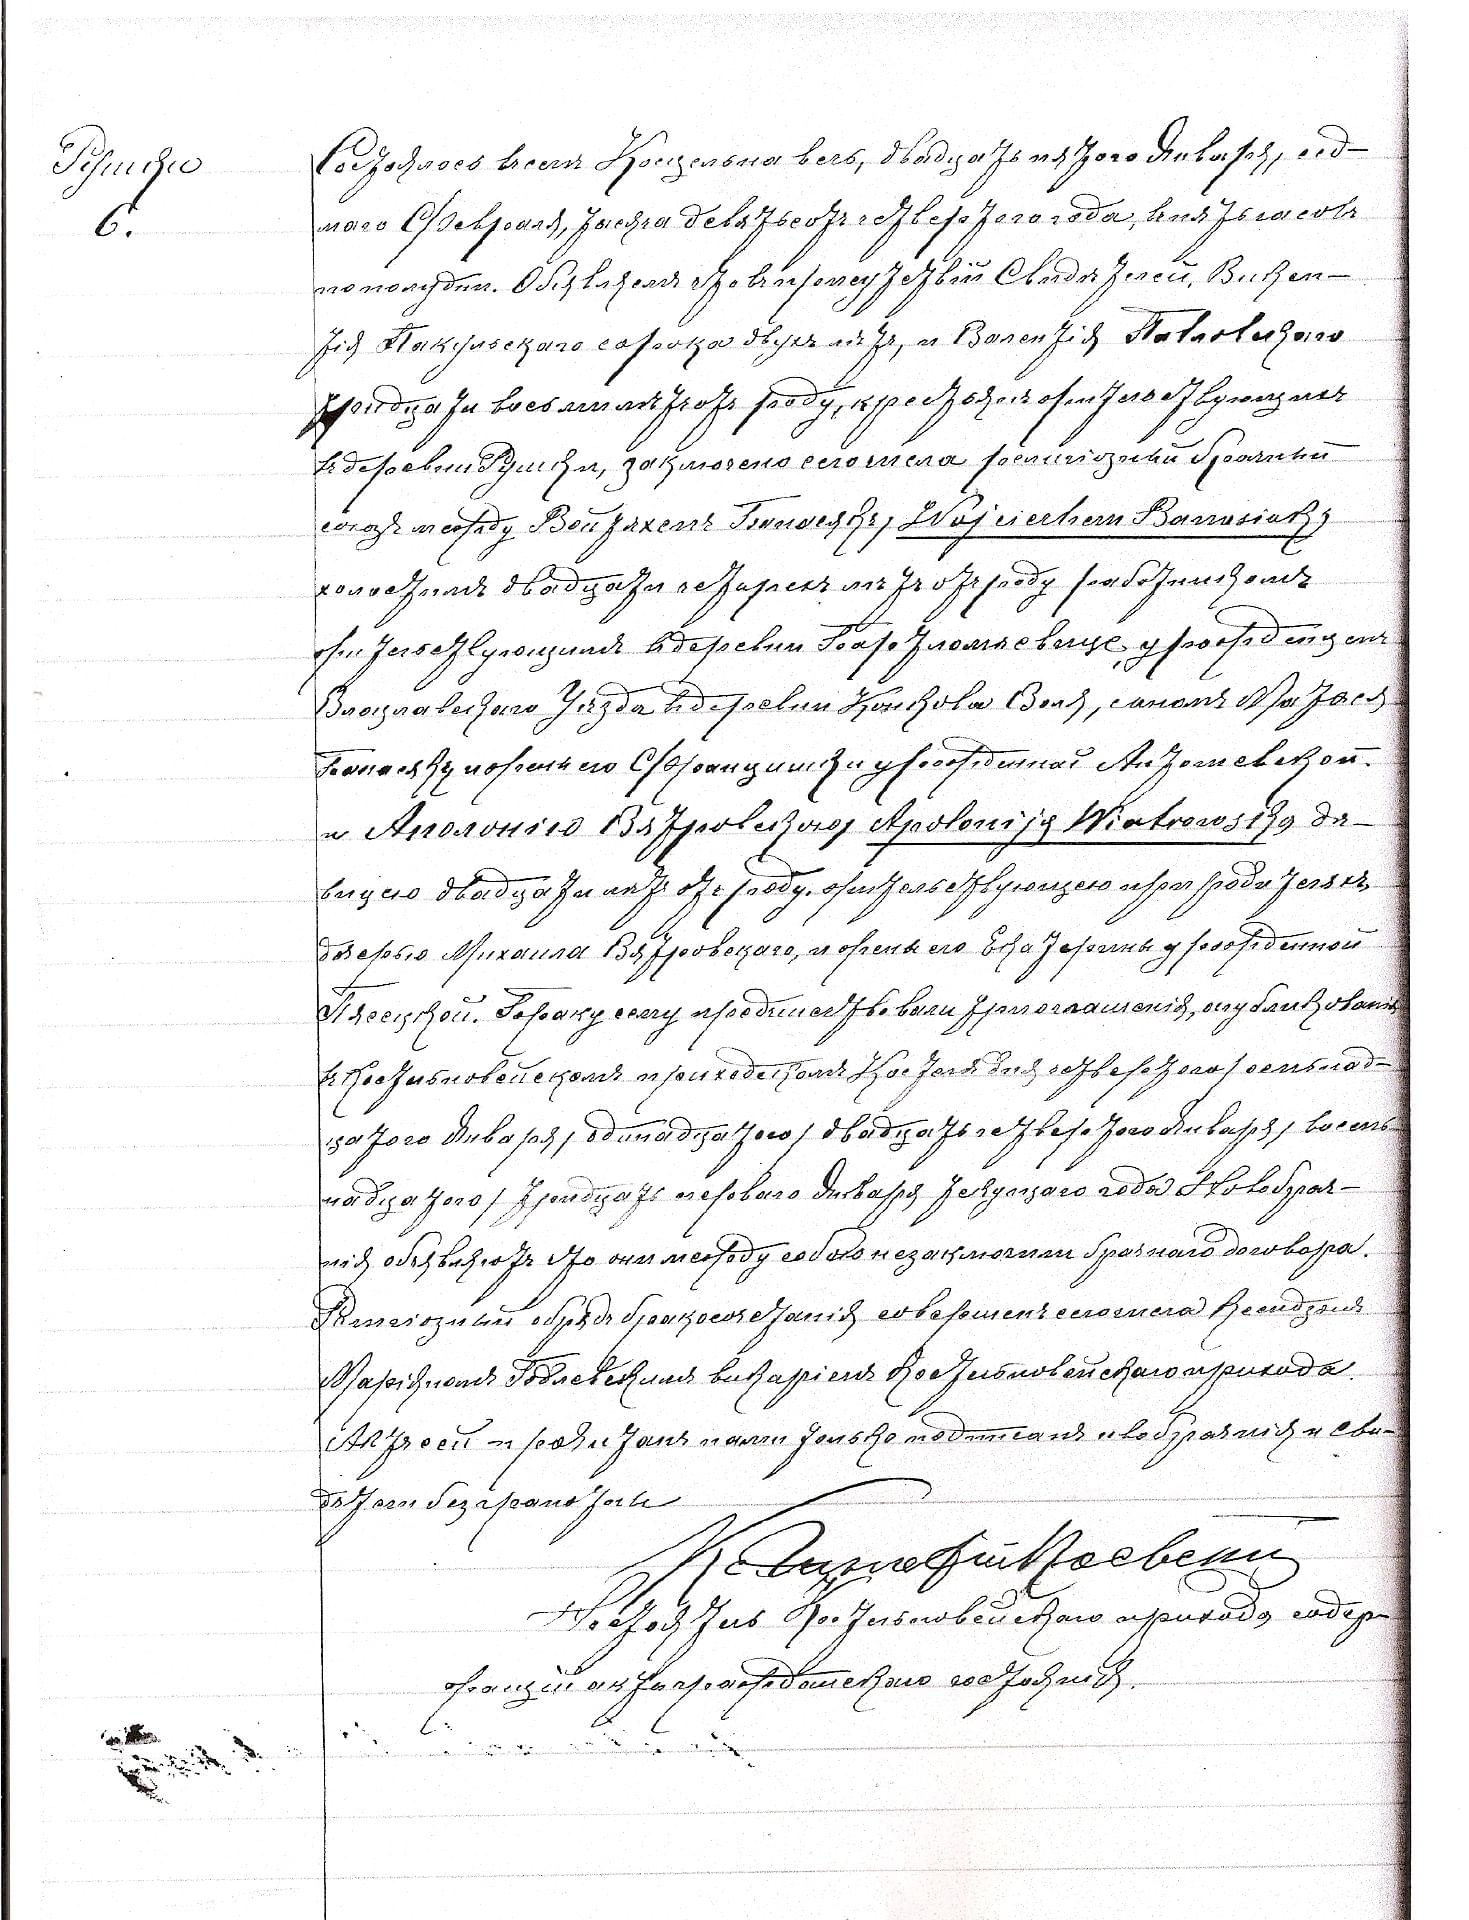 Рушки
6.
Состоялось въ селѣ Косцельна весь, двадцать пятаго Января, сед-
маго Февраля, тысяча девятьсотъ четвертаго года, въ пять часовъ
пополудни. Объявляемъ что въ присутствіи Свидѣтелей, Викен-
тія Пакульскаго сорока двухъ лѣтъ, и Валентія Павловскаго
тридцати восьми лѣтъ отъ роду, крестьянъ жительствующихъ
въ деревни Рушки, заключено сего числа религіозный брачный
союзъ между Войцѣхемъ Банасякъ, Wojciechem Banasiak,
холостымъ двадцати четырехъ лѣтъ отъ роду работникомъ
жительствующимъ въ деревни урожденцемъ
Влоцлавскаго Уѣзда въ деревни Воля, сыномъ Матеся
Банасяку и жены его Францишки урожденной Антошевской.
и Аполонію Вятровскою, Apoloniją Wiatrowską дѣ-
вицею двадцати лѣтъ отъ роду, жительствующею при родителяхъ,
дочерью Михаила Вятровскаго, и жены его Екатерины урожденной
Браку сему предшествовали три оглашенія, опубликованія
въ Костельновейскомъ приходскомъ Костелѣ дня четвертаго / семьнад-
цатаго Января, одинадцатаго / двадцать четвертаго Января, восемь-
надцатаго / тридцать перваго Января текущаго года Новобрач-
нія объявляютъ что они между собою незаключили брачнаго договора.
Религіозный обрядъ бракосочетанія совершенъ сего числа Ксендзомъ
Маріяномъ викаріемъ Костельновейскаго прихода.
Актъ сей прочитанъ нами только подписанъ новобрачнія и сви-
дѣтели безграмотны
Кс.
Настоятель Костельновейскаго прихода содер-
жащій акты гражданскаго состоянія.